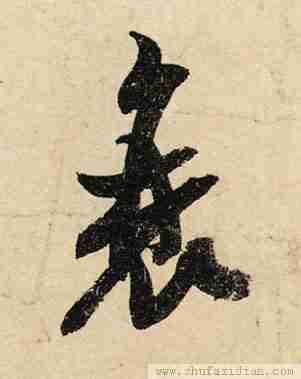 衰
www.zhufazidian.com